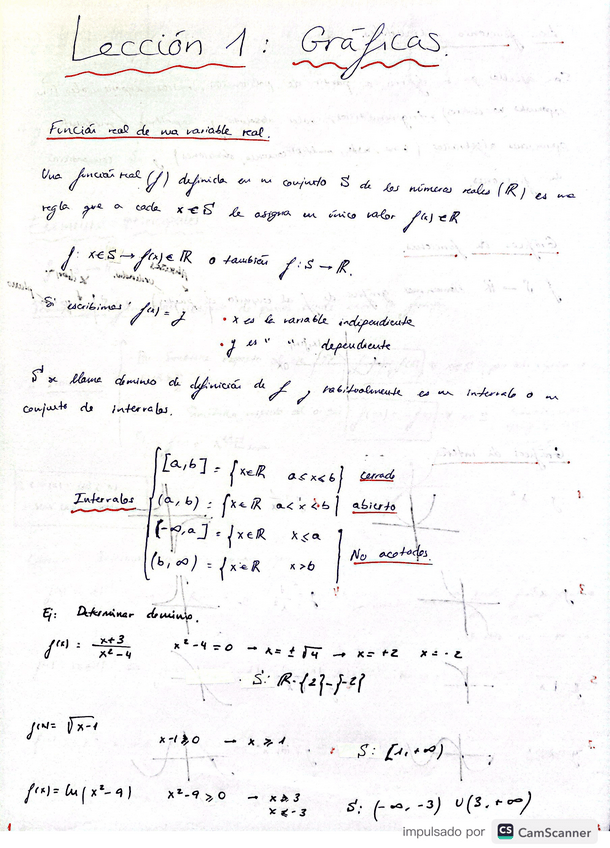 Lección 1: Gráficas.
Función real de una variable real.
Una función real (f) definida en un conjunto S de los números reales (ℝ) es una
regla que a cada x ∈ S le asigna un único valor f(x) ∈ ℝ
f: x ∈ S → f(x) ∈ ℝ o también f: S → ℝ.
Si escribimos f(x) = y • x es la variable independiente
• y es " " dependiente
S se llama dominio de definición de f y habitualmente es un intervalo o un
conjunto de intervalos.
[a, b] = {x ∈ ℝ a ≤ x ≤ b} cerrado
Intervalos (a, b) = {x ∈ ℝ a < x < b} abierto
(-∞, a] = {x ∈ ℝ x ≤ a
(b, ∞) = {x ∈ ℝ x > b
No acotados.
Ej: Determinar dominio.
f(x) = (x+3)/(x²-4) x²-4 = 0 → x = ±√4 → x = +2 x = -2
S: ℝ-{2}-{-2}
f(x) = √(x-1) x-1 ≥ 0 → x ≥ 1 S: [1, +∞)
f(x) = ln(x²-9) x²-9 ≥ 0 → x ≥ 3
x ≤ -3 S: (-∞, -3) ∪ (3, +∞)
impulsado por CS CamScanner